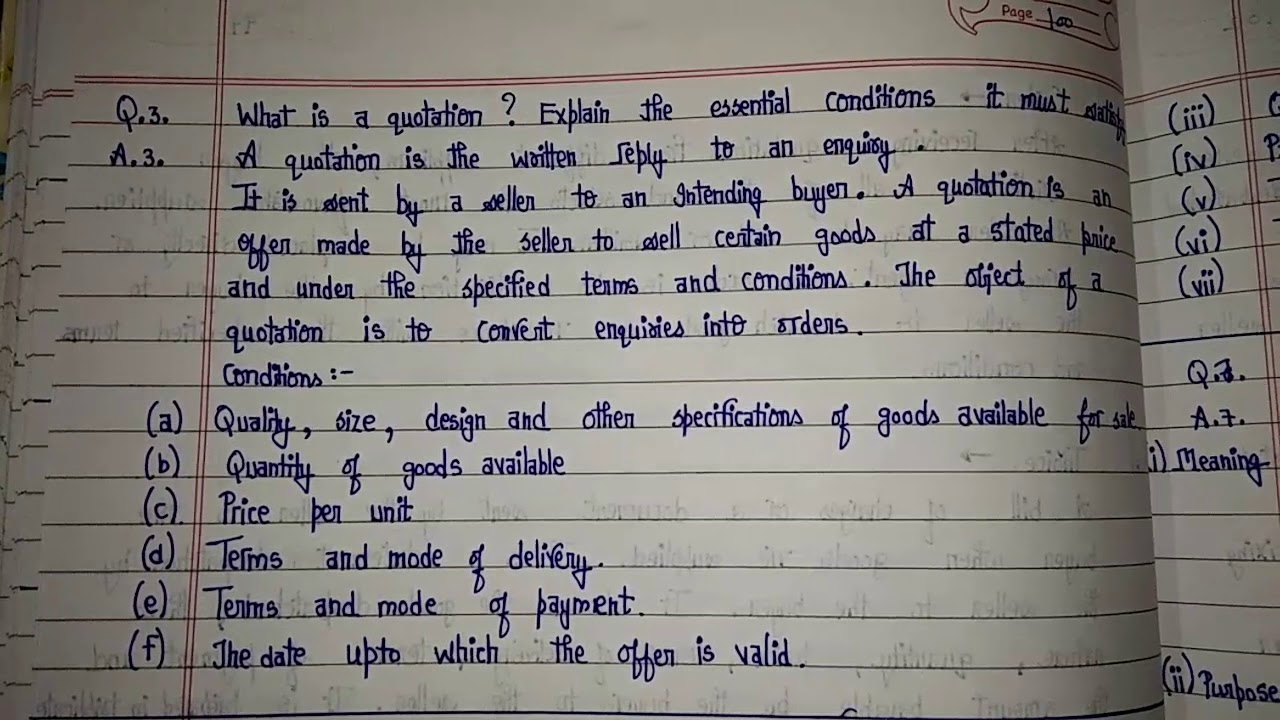 Page 100
Q.3. What is a quotation ? Explain the essential conditions it must satisfy
A.3. A quotation is the written reply to an enquiry .
It is sent by a seller to an Intending buyer. A quotation is an
offer made by the seller to sell certain goods at a stated price
and under the specified terms and conditions. The object of a
quotation is to convert enquiries into orders.
Conditions :-
(a) Quality, size, design and other specifications of goods available for sale
(b) Quantity of goods available
(c) Price per unit
(d) Terms and mode of delivery.
(e) Terms and mode of payment.
(f) The date upto which the offer is valid.
(iii)
(iv)
(v)
(vi)
(vii)
Q.7.
A.7.
i) Meaning
(ii) Purpose